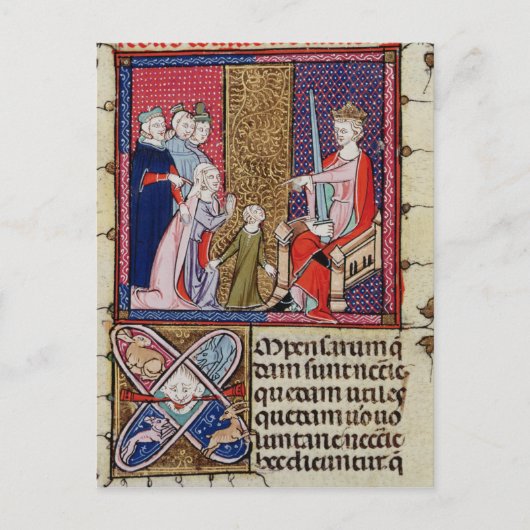 Mpensarum q
dam sunt necc̄ie
quedam utiles
quedam uo uo
luntarie necc̄cie
hec dicuntur q̄